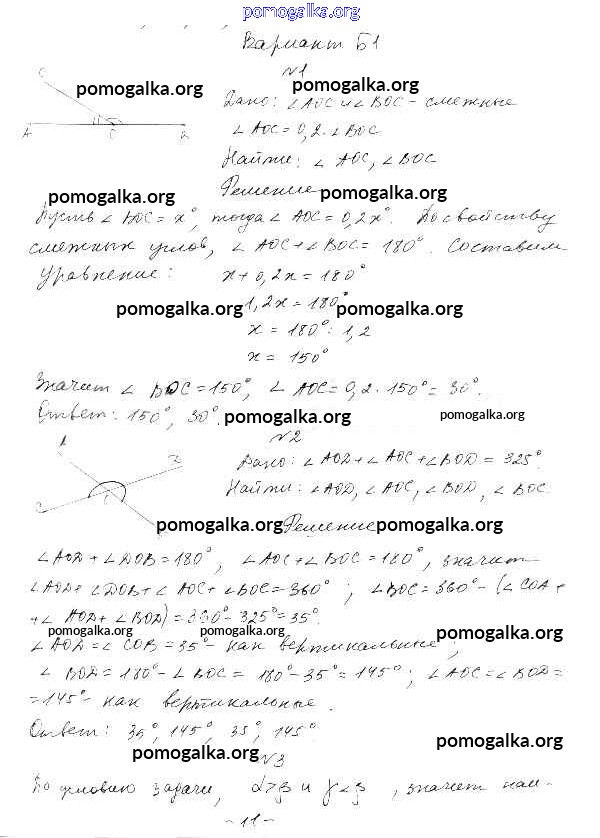 pomogalka.org
Вариант Б1
№1
pomogalka.org
pomogalka.org
C
A
B
Дано: ∠AOC и ∠BOC - смежные
∠AOC = 0,2 · ∠BOC
Найти: ∠AOC, ∠BOC
pomogalka.org
Решение
pomogalka.org
Пусть ∠BOC = x°, тогда ∠AOC = 0,2x°. По свойству
смежных углов, ∠AOC + ∠BOC = 180°. Составим
уравнение: x + 0,2x = 180°
pomogalka.org
1,2x = 180°
pomogalka.org
x = 180° : 1,2
x = 150°
Значит ∠BOC = 150°, ∠AOC = 0,2 · 150° = 30°.
Ответ: 150°, 30°.
pomogalka.org
pomogalka.org
№2
A
C
Дано: ∠AOD + ∠AOC + ∠BOD = 325°.
Найти: ∠AOD, ∠AOC, ∠BOD, ∠BOC.
pomogalka.org
Решение
pomogalka.org
∠AOD + ∠DOB = 180°, ∠AOC + ∠BOC = 180°, значит
∠AOD + ∠DOB + ∠AOC + ∠BOC = 360°; ∠BOC = 360° - (∠COA +
+ ∠AOD + ∠BOD) = 360° - 325° = 35°.
pomogalka.org
pomogalka.org
pomogalka.org
∠AOD = ∠COB = 35° - как вертикальные;
∠BOD = 180° - ∠BOC = 180° - 35° = 145°; ∠AOC = ∠BOD =
= 145° - как вертикальные.
Ответ: 35°, 145°, 35°, 145°.
pomogalka.org
pomogalka.org
№3
По условию задачи, α > β и γ < β, значит наи-
- 11 -